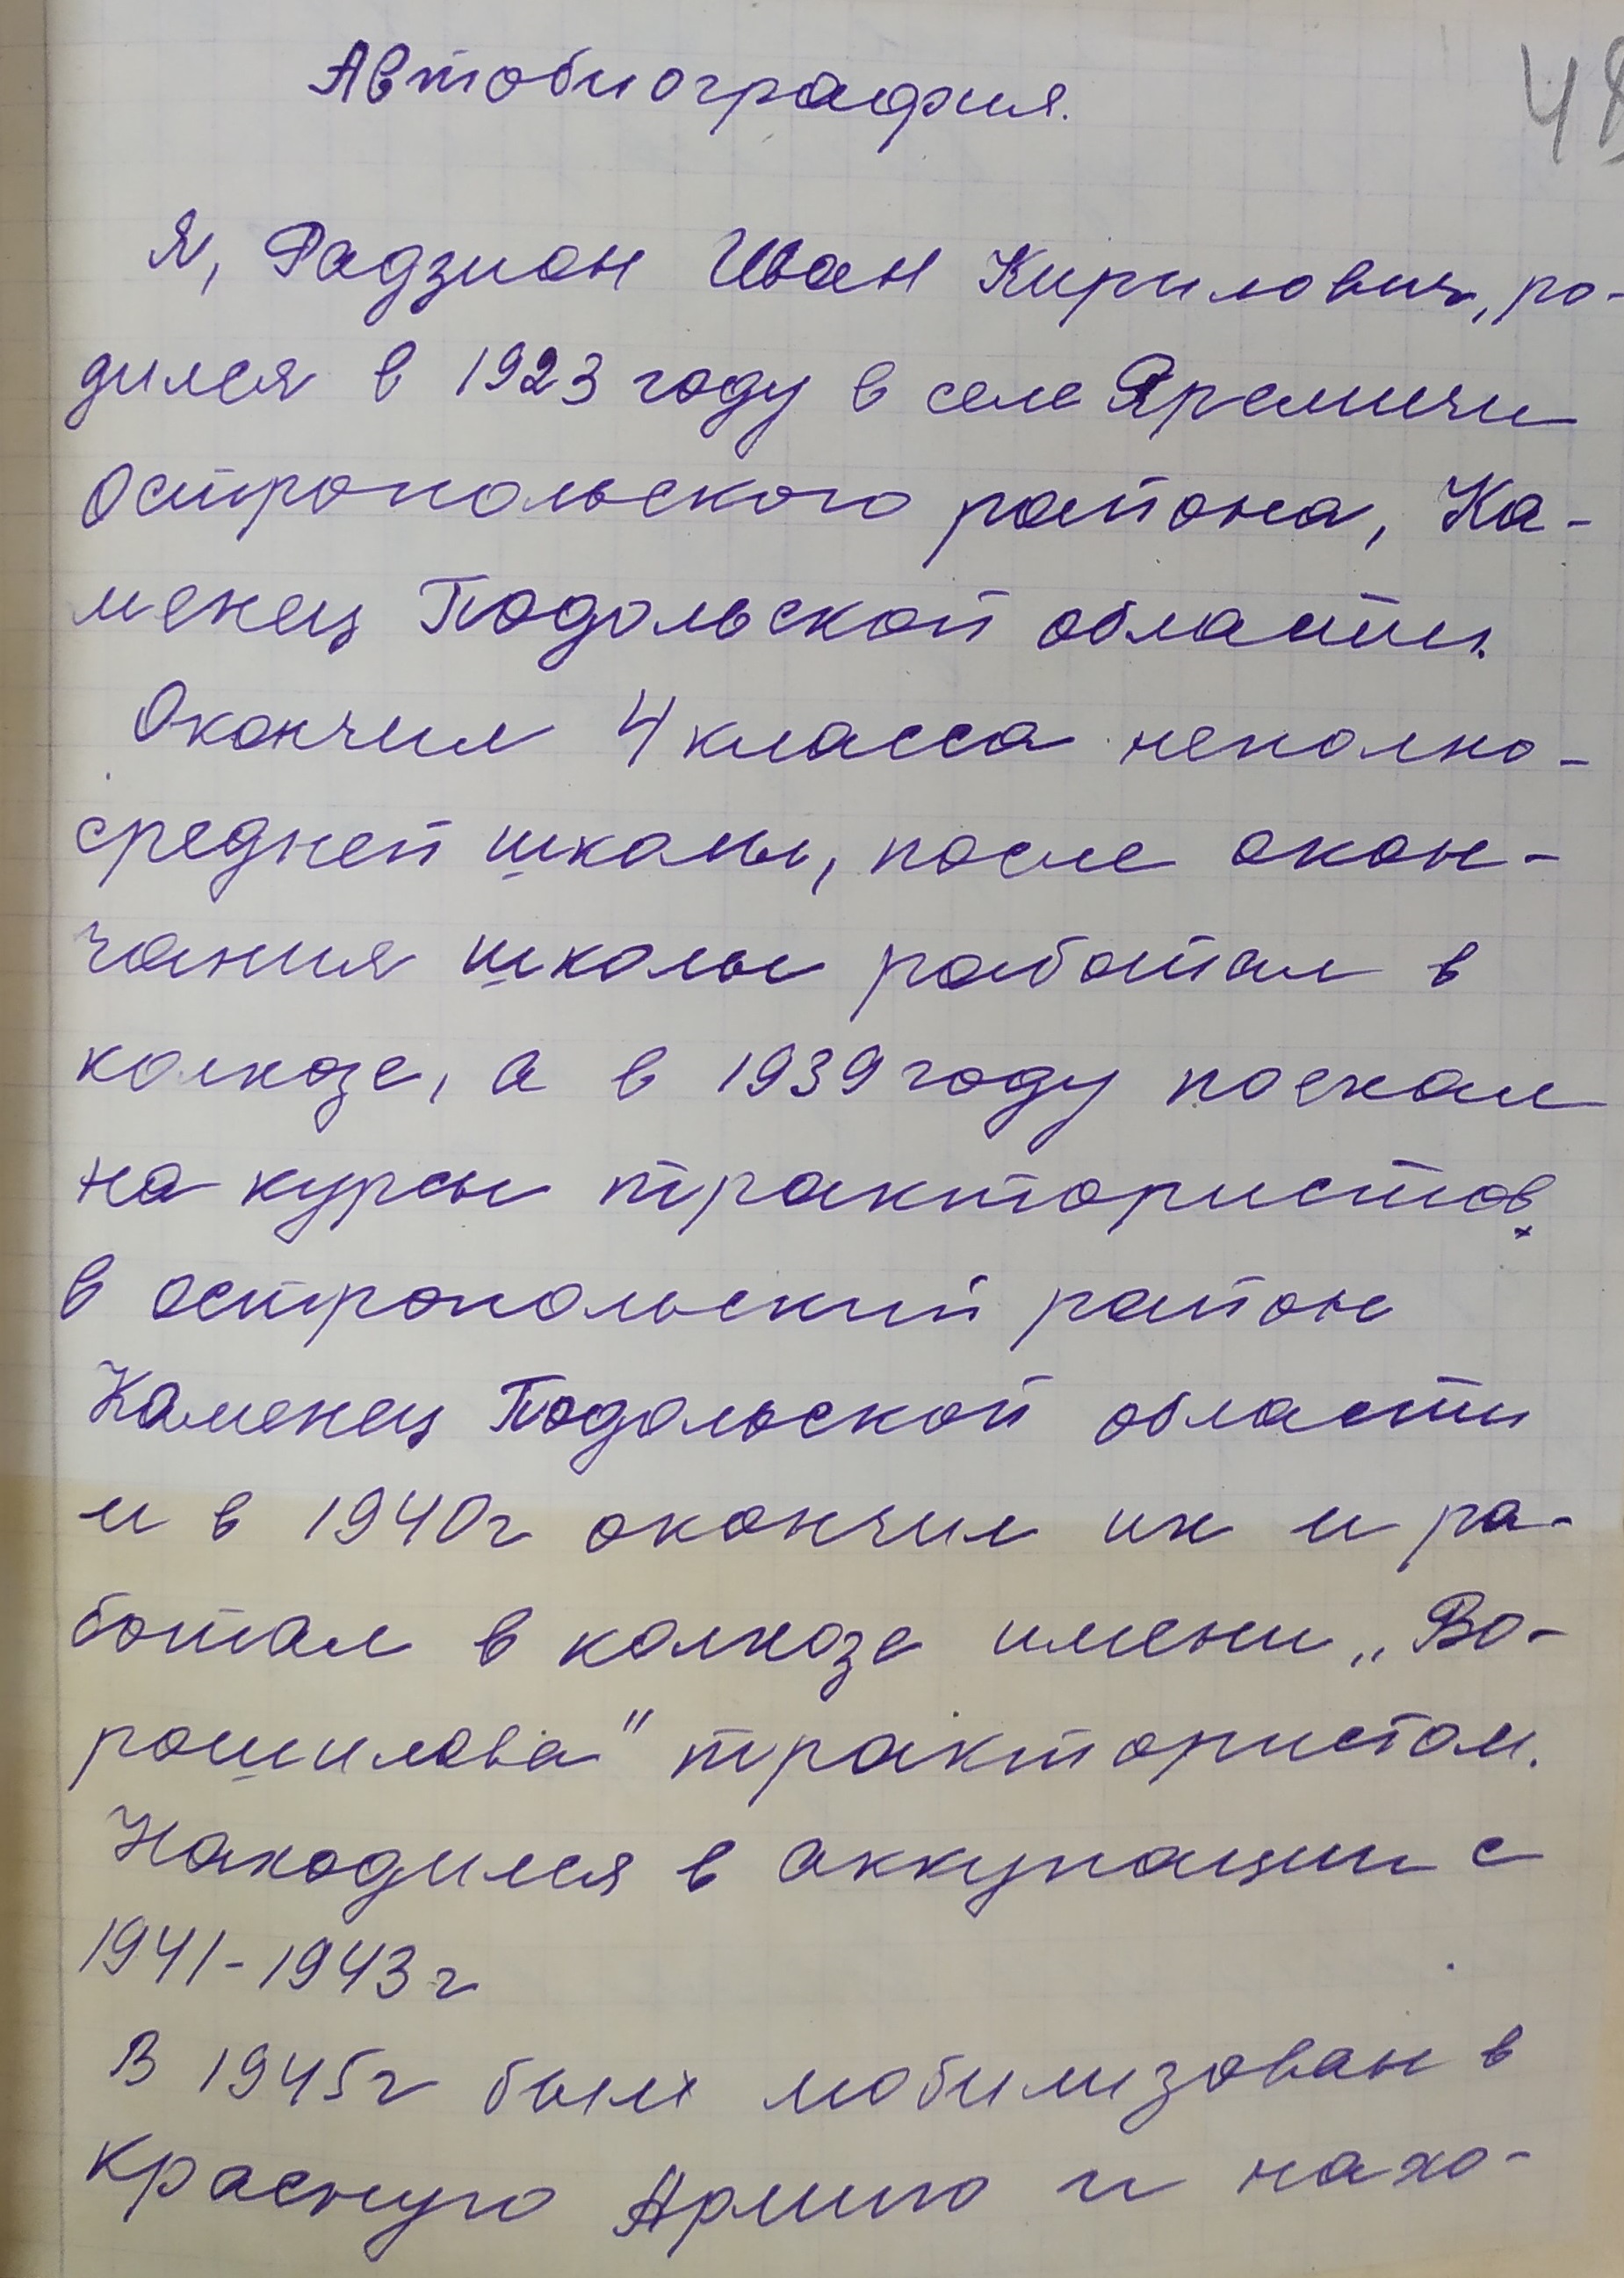 48
Автобиография.
Я, Радзион Иван Кирилович, ро-
дился в 1923 году в селе Яремичи
Остропольского района, Ка-
менец Подольской области.
Окончил 4 класса неполно-
средней школы, после окон-
чания школы работал в
колхозе, а в 1939 году поехал
на курсы трактористов
в остропольский район
Каменец Подольской области
и в 1940г окончил их и ра-
ботал в колхозе имени „Во-
рошилова" трактористом.
Находился в аккупации с
1941-1943 г
В 1945г был мобилизован в
Красную Армию и нахо-